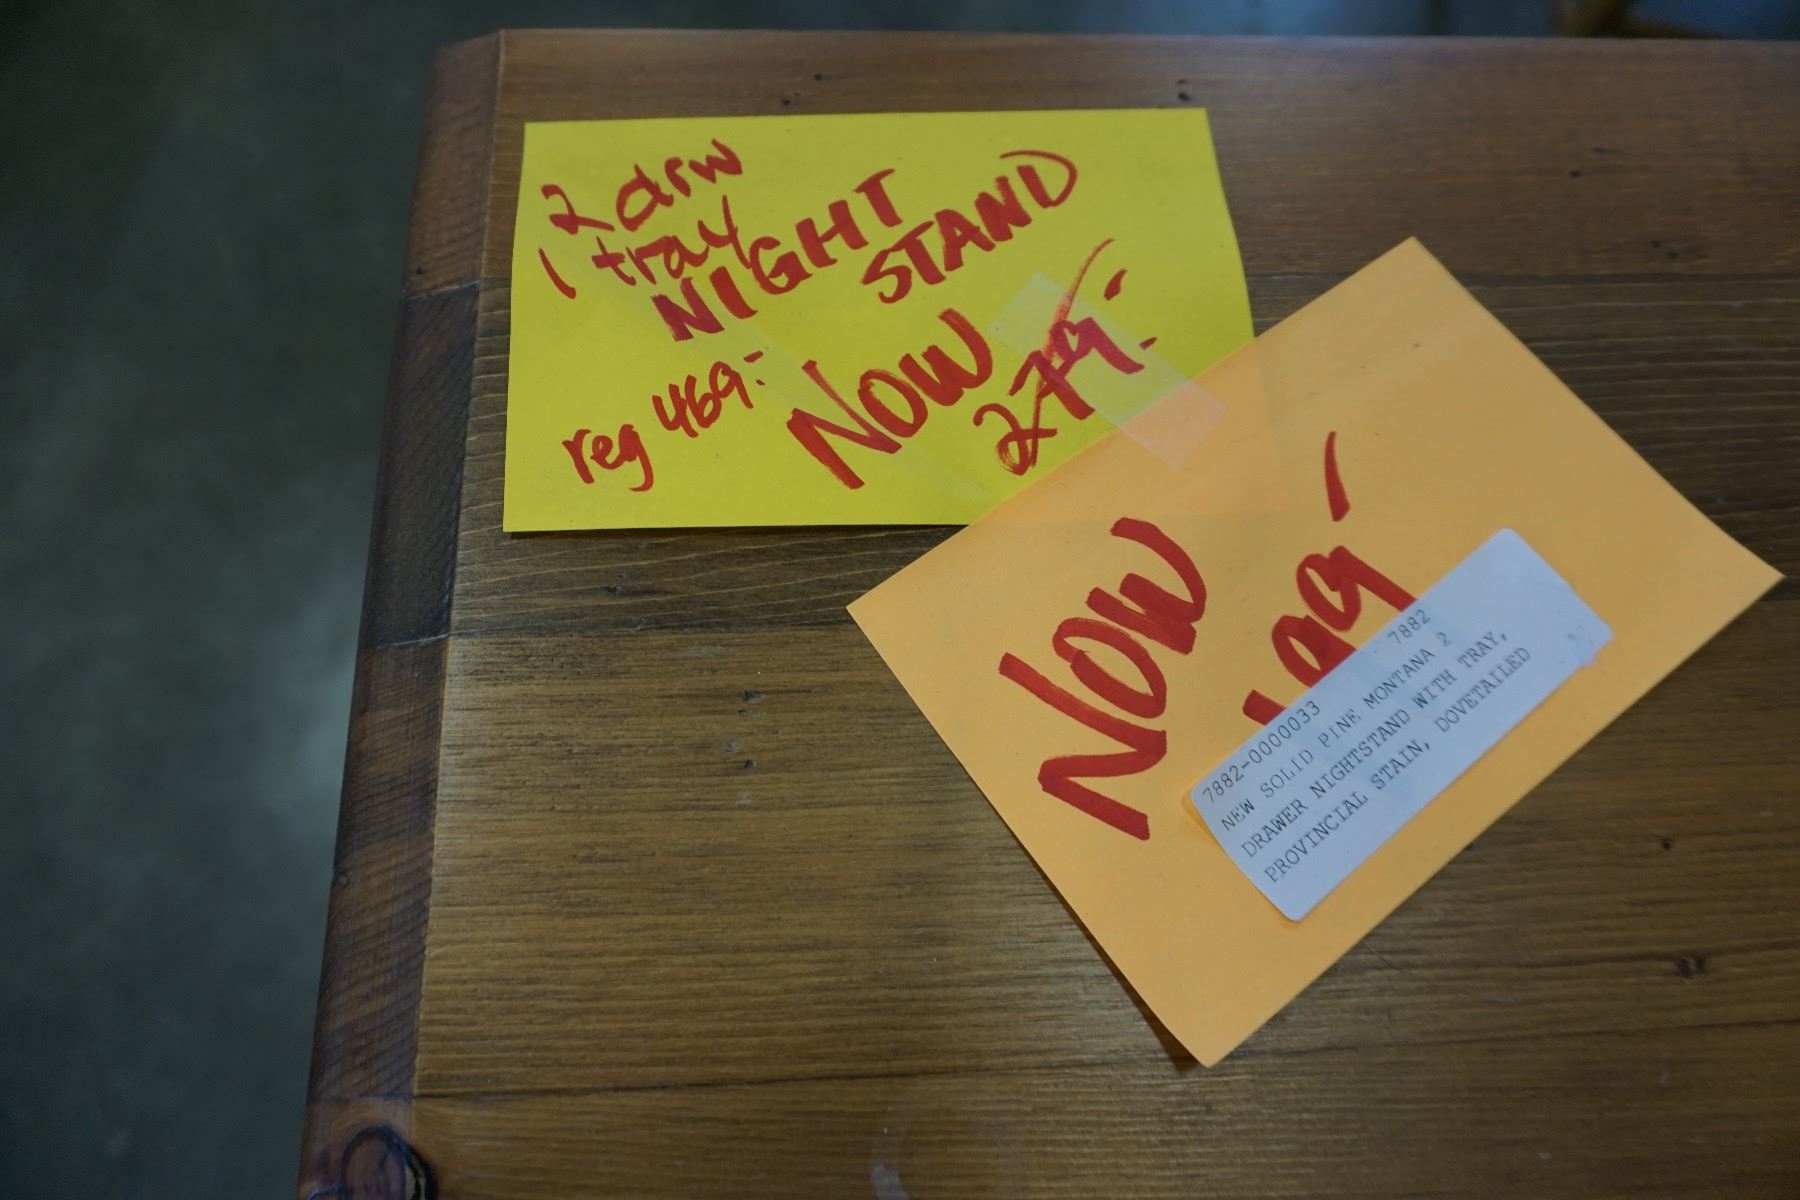 2 drw
1 tray
NIGHT
STAND
reg 469.-
NOW
279.-
NOW
199-
7882-0000033 7882
NEW SOLID PINE MONTANA 2
DRAWER NIGHTSTAND WITH TRAY,
PROVINCIAL STAIN, DOVETAILED